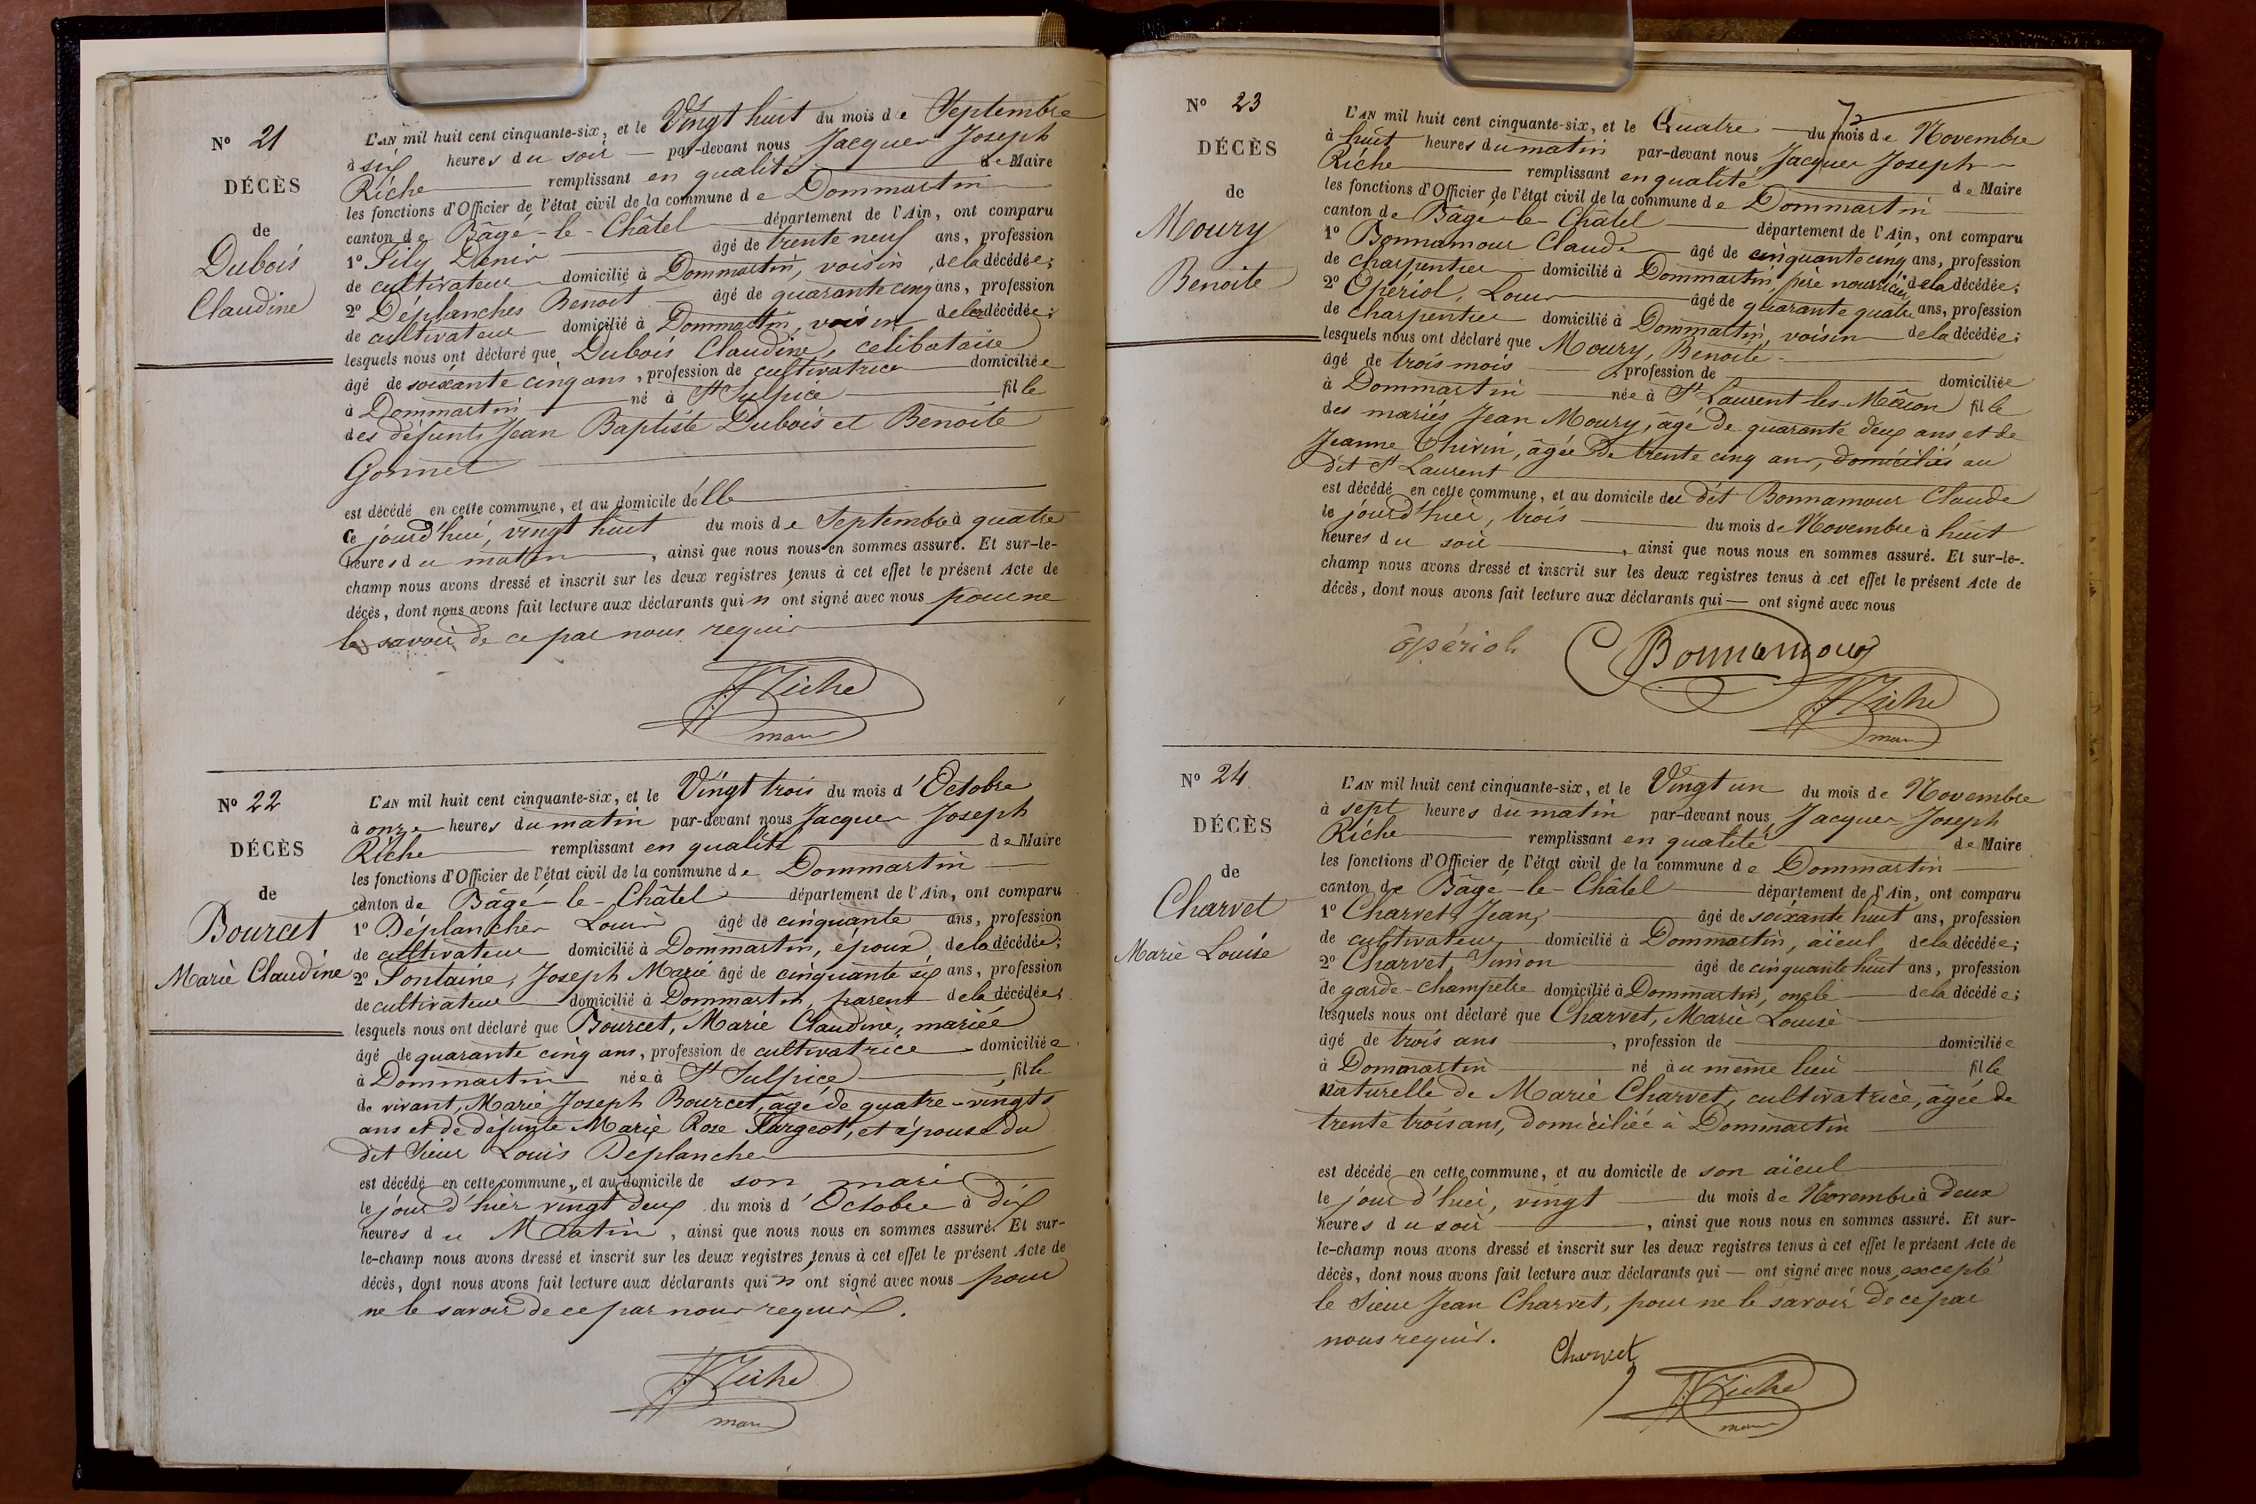 N° 21
DÉCÈS
de
Dubois
Claudine
L'AN mil huit cent cinquante-six, et le Vingt huit du mois de Septembre
à six heures du soir — par-devant nous Jacques Joseph
Riche remplissant en qualité de Maire
les fonctions d'Officier de l'état civil de la commune de Dommartin
canton de Bâgé-le-Châtel département de l'Ain, ont comparu
1° Sily Denis âgé de trente neuf ans, profession
de cultivateur domicilié à Dommartin, voisin de la décédée;
2° Déplanches Benoit âgé de quarante cinq ans, profession
de cultivateur domicilié à Dommartin, voisin de la décédée;
lesquels nous ont déclaré que Dubois Claudine, celibataire
âgé de soixante cinq ans, profession de cultivatrice domiciliée
à Dommartin né à St Sulpice fille
des défunts Jean Baptiste Dubois et Benoite
Gonnet
est décédé en cette commune, et au domicile d'elle
Ce jourd'hui, vingt huit du mois de Septembre à quatre
heures du matin, ainsi que nous nous en sommes assuré. Et sur-le-
champ nous avons dressé et inscrit sur les deux registres tenus à cet effet le présent Acte de
décès, dont nous avons fait lecture aux déclarants qui n ont signé avec nous pour ne
le savoir de ce par nous requis
JJ Riche
maire
N° 22
DÉCÈS
de
Bourcet
Marie Claudine
L'AN mil huit cent cinquante-six, et le Vingt trois du mois d'Octobre
à onze heures du matin par-devant nous Jacques Joseph
Riche remplissant en qualité de Maire
les fonctions d'Officier de l'état civil de la commune de Dommartin
canton de Bâgé-le-Châtel département de l'Ain, ont comparu
1° Déplanches Louis âgé de cinquante ans, profession
de cultivateur domicilié à Dommartin, époux de la décédée;
2° Fontaine, Joseph Marie âgé de cinquante six ans, profession
de cultivateur domicilié à Dommartin, parent de la décédée;
lesquels nous ont déclaré que Bourcet, Marie Claudine, mariée
âgé de quarante cinq ans, profession de cultivatrice domiciliée
à Dommartin née à St Sulpice, fille
de vivant, Marie Joseph Bourcet, âgé de quatre-vingts
ans et de défunte Marie Rose Surgeot, et épouse du
dit Sieur Louis Deplanche
est décédé en cette commune, et au domicile de son mari
le jour d'hier vingt deux du mois d'Octobre à dix
heures du Matin, ainsi que nous nous en sommes assuré. Et sur-
le-champ nous avons dressé et inscrit sur les deux registres tenus à cet effet le présent Acte de
décès, dont nous avons fait lecture aux déclarants qui n ont signé avec nous pour
ne le savoir de ce par nous requis.
JJ Riche
maire
N° 23
DÉCÈS
de
Moury
Benoite
L'AN mil huit cent cinquante-six, et le Quatre du mois de Novembre
à huit heures du matin par-devant nous Jacques Joseph
Riche remplissant en qualité de Maire
les fonctions d'Officier de l'état civil de la commune de Dommartin
canton de Bâgé-le-Châtel département de l'Ain, ont comparu
1° Bonnamour Claude âgé de cinquante cinq ans, profession
de charpentier domicilié à Dommartin, père nourricier de la décédée;
2° Opériol, Louis âgé de quarante quatre ans, profession
de charpentier domicilié à Dommartin, voisin de la décédée;
lesquels nous ont déclaré que Moury, Benoite
âgé de trois mois, profession de domiciliée
à Dommartin née à St Laurent-les-Mâcon fille
des mariés Jean Moury, âgé de quarante deux ans, et de
Jeanne Thivin, âgée de trente cinq ans, domiciliés au
dit St Laurent
est décédé en cette commune, et au domicile du dit Bonnamour Claude
le jourd'hier, trois du mois de Novembre à huit
heures du soir, ainsi que nous nous en sommes assuré. Et sur-le-
champ nous avons dressé et inscrit sur les deux registres tenus à cet effet le présent Acte de
décès, dont nous avons fait lecture aux déclarants qui — ont signé avec nous
opériol C Bonnamour
JJ Riche
maire
N° 24
DÉCÈS
de
Charvet
Marie Louise
L'AN mil huit cent cinquante-six, et le Vingt un du mois de Novembre
à sept heures du matin par-devant nous Jacques Joseph
Riche remplissant en qualité de Maire
les fonctions d'Officier de l'état civil de la commune de Dommartin
canton de Bâgé-le-Châtel département de l'Ain, ont comparu
1° Charvet, Jean, âgé de soixante huit ans, profession
de cultivateur domicilié à Dommartin, aïeul de la décédée;
2° Charvet, Simon âgé de cinquante huit ans, profession
de garde-champetre domicilié à Dommartin, oncle de la décédée;
lesquels nous ont déclaré que Charvet, Marie Louise
âgé de trois ans, profession de domiciliée
à Dommartin né au même lieu fille
naturelle de Marie Charvet, cultivatrice, âgée de
trente trois ans, domiciliée à Dommartin
est décédé en cette commune, et au domicile de son aïeul
le jour d'hier, vingt du mois de Novembre à deux
heures du soir, ainsi que nous nous en sommes assuré. Et sur-
le-champ nous avons dressé et inscrit sur les deux registres tenus à cet effet le présent Acte de
décès, dont nous avons fait lecture aux déclarants qui — ont signé avec nous, excepté
le Sieur Jean Charvet, pour ne le savoir de ce par
nous requis.
Charvet
JJ Riche
maire